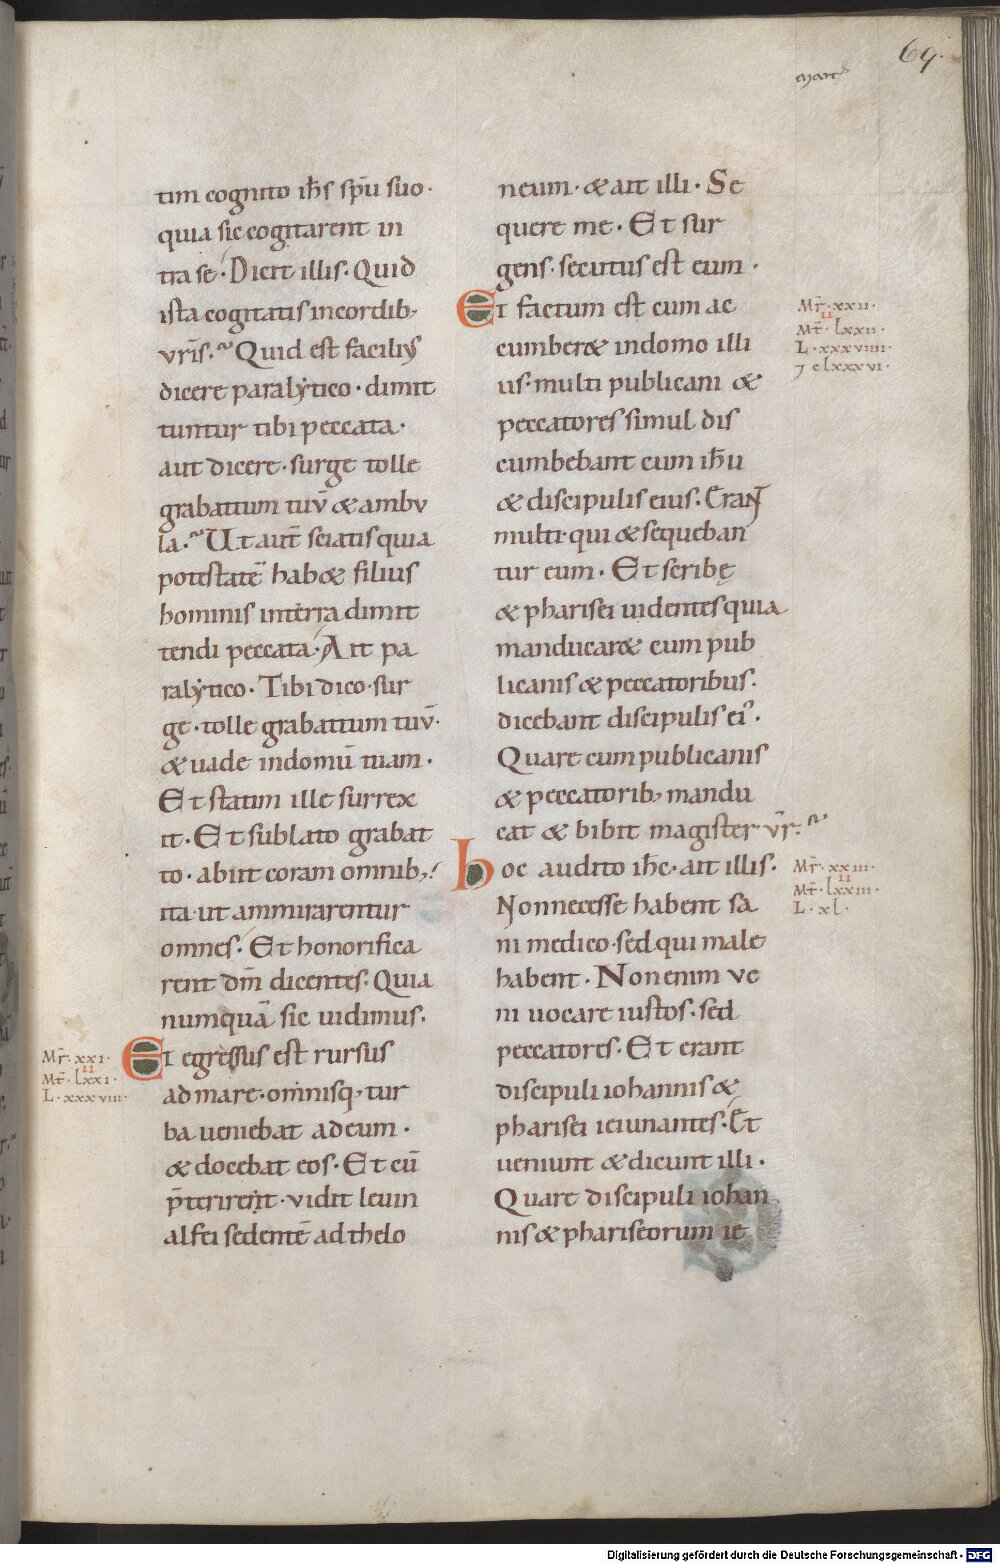 69.
marc
tim cognito ih̅s sp̅u suo·
quia sic cogitarent in
tra se· Dicit illis· Quid
ista cogitatis in cordib;
vr̅is· Quid est facilius
dicere paralytico· dimit
tuntur tibi peccata·
aut dicere· surge tolle
grabattum tuū & ambu
la· Ut aut̅ sciatis quia
potestatē hab& filius
hominis in terra dimit
tendi peccata· Ait pa
ralytico· Tibi dico· sur
ge· tolle grabattum tuū·
& uade in domū tuam·
Et statim ille surrex
it· Et sublato grabat
to· abiit coram omnib;
ita ut ammirarentur
omnes· Et honorifica
rent dm̅ dicentes· Quia
numquā sic uidimus·
Mr̅· xxi·
II
Mt̅· lxxi·
L· xxxviii·
Et egressus est rursus
ad mare· omnisq; tur
ba ueniebat ad eum·
& docebat eos· Et cū
p̅terirent· vidit leuin
alfei sedentē ad thelo
neum· & ait illi· Se
quere me· Et sur
gens· secutus est eum·
Et factum est cum ac
cumber& in domo illi
us· multi publicani &
peccatores simul dis
cumbebant cum ih̅u
& discipulis eius· Erant
multi· qui & sequeban
tur eum· Et scribę
& pharisei uidentes quia
manducar& cum pub
licanis & peccatoribus·
dicebant discipulis ei᾽·
Quare cum publicanis
& peccatorib; mandu
cat & bibit magister vr̅·
Mr̅· xxii·
II
Mt̅· lxxii·
L· xxxviiii·
7 clxxxvi·
hoc audito ih̅c· ait illis·
Non necesse habent sa
ni medico· sed qui male
habent· Non enim ve
ni uocare iustos· sed
peccatores· Et erant
discipuli iohannis &
pharisei ieiunantes· Et
ueniunt & dicunt illi·
Quare discipuli iohan
nis & phariseorum ie
Mr̅· xxiii·
II
Mt̅· lxxiii·
L· xl·
Digitalisierung gefördert durch die Deutsche Forschungsgemeinschaft - DFG